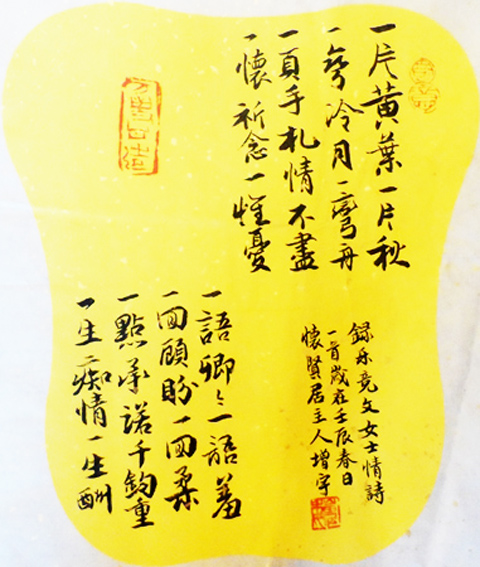 一片黃葉一片秋
一弯冷月一彎舟
一頁手札情不盡
一懷祈念一惟憂
一語卿々一語羞
一回顧盼一回柔
一點承諾千鈞重
一生痴情一生酬
録乐竞文女士情詩
一首歲在壬辰春日
懷賢居主人增宇